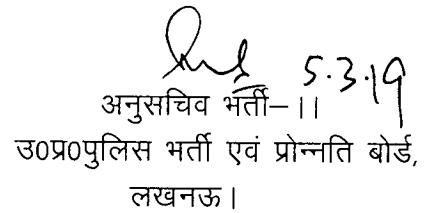 5.3.19
अनुसचिव भर्ती–।।
उ0प्र0पुलिस भर्ती एवं प्रोन्नति बोर्ड,
लखनऊ।